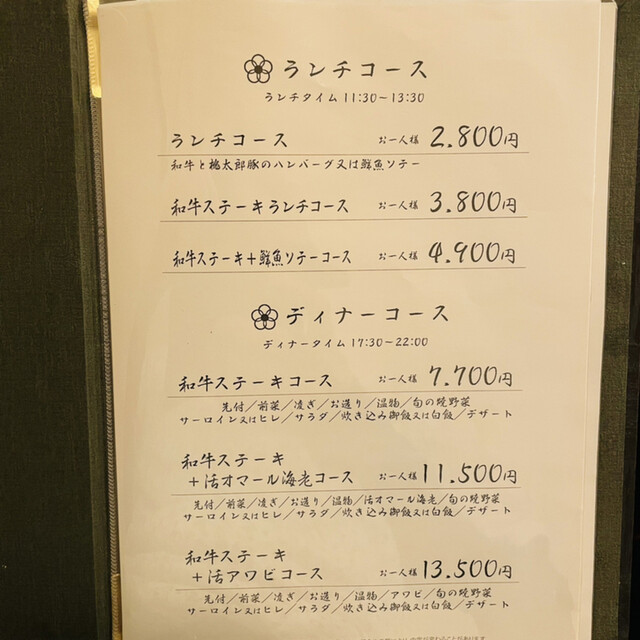 ランチコース
ランチタイム 11:30~13:30
ランチコース お一人様 2.800円
和牛と桃太郎豚のハンバーグ又は鮮魚ソテー
和牛ステーキランチコース お一人様 3.800円
和牛ステーキ+鮮魚ソテーコース お一人様 4.900円
ディナーコース
ディナータイム 17:30~22:00
和牛ステーキコース お一人様 7.700円
先付/前菜/凌ぎ/お造り/温物/旬の焼野菜
サーロイン又はヒレ/サラダ/炊き込み御飯又は白飯/デザート
和牛ステーキ
+活オマール海老コース お一人様 11.500円
先付/前菜/凌ぎ/お造り/温物/活オマール海老/旬の焼野菜
サーロイン又はヒレ/サラダ/炊き込み御飯又は白飯/デザート
和牛ステーキ
+活アワビコース お一人様 13.500円
先付/前菜/凌ぎ/お造り/温物/アワビ/旬の焼野菜
サーロイン又はヒレ/サラダ/炊き込み御飯又は白飯/デザート